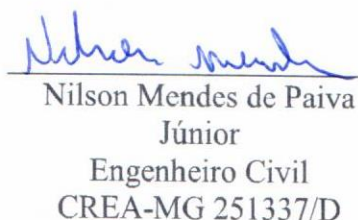 Nilson Mendes
Nilson Mendes de Paiva
Júnior
Engenheiro Civil
CREA-MG 251337/D